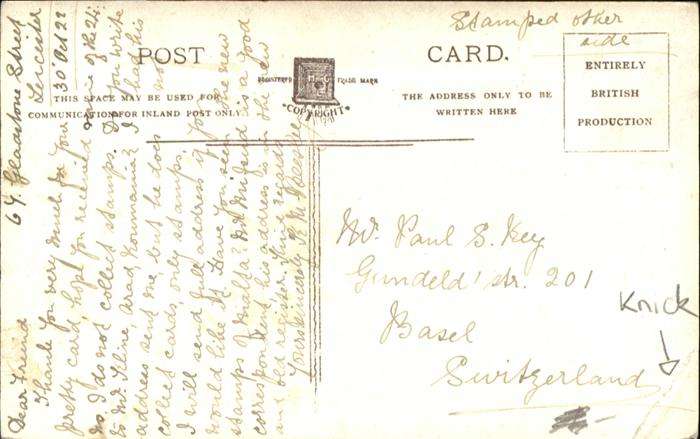 64. Gladstone Street
Leicester
30 Oct 22
Dear Friend
Thank you very much for your
pretty card, hope you received mine of the 24.
No I do not collect stamps. Do you write
to Mr. Iline, Arad Roumania? I had his
address sent me, but he does not
collect cards, only stamps.
I will send full address if you
would like it. Have you seen the new
stamps of Malta? My friend is a good
correspondent his address is in the new
and old register. Kind regards
Yours sincerely
POST CARD.
REGISTERED TRADE MARK
"COPYRIGHT"
THIS SPACE MAY BE USED FOR
COMMUNICATION FOR INLAND POST ONLY
THE ADDRESS ONLY TO BE
WRITTEN HERE
Stamped other
side
ENTIRELY
BRITISH
PRODUCTION
Mr. Paul S. Key
Gundeld'str. 201
Basel
Switzerland
Knick